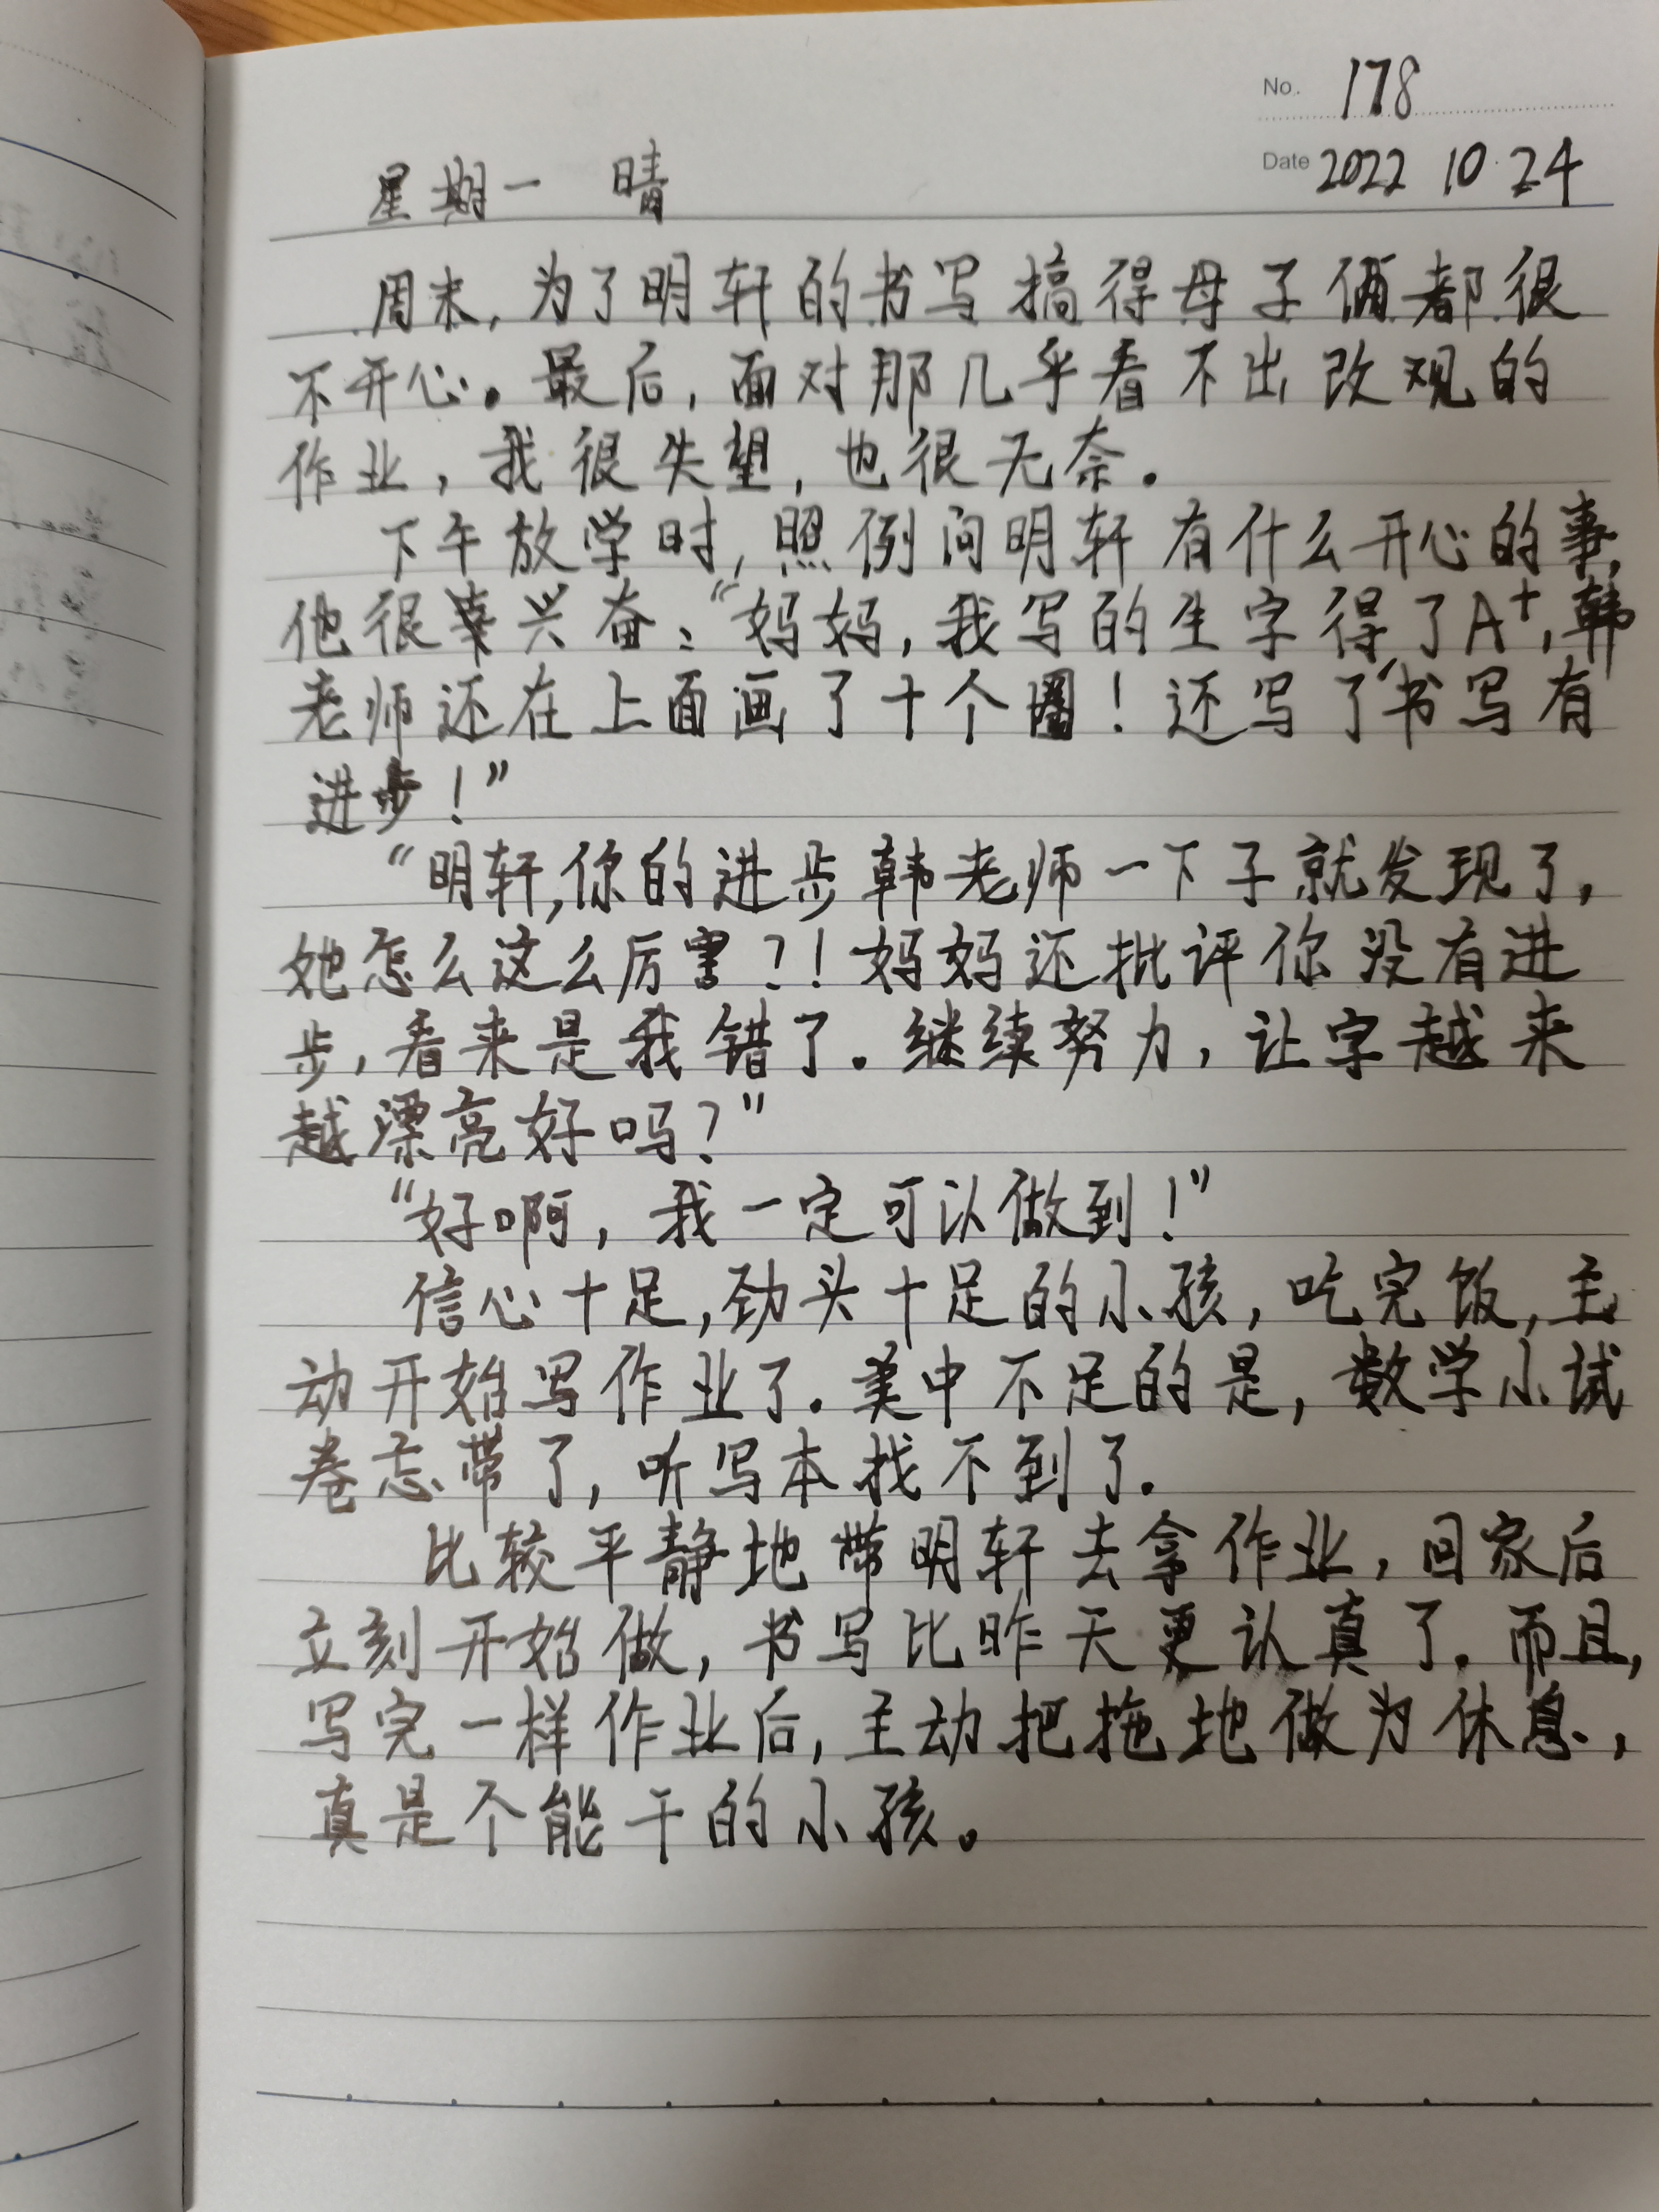 No. 178
Date 2022 10·24
星期一 晴
周末，为了明轩的书写搞得母子俩都很
不开心。最后，面对那几乎看不出改观的
作业，我很失望，也很无奈。
下午放学时，照例问明轩有什么开心的事，
他很兴奋：“妈妈，我写的生字得了A+，韩
老师还在上面画了十个圈！还写了‘书写有
进步！”
“明轩，你的进步韩老师一下子就发现了，
她怎么这么厉害？！妈妈还批评你没有进
步，看来是我错了。继续努力，让字越来
越漂亮好吗？”
“好啊，我一定可以做到！”
信心十足，劲头十足的小孩，吃完饭，主
动开始写作业了。美中不足的是，数学小试
卷忘带了，听写本找不到了.
比较平静地带明轩去拿作业，回家后
立刻开始做，书写比昨天更认真了。而且，
写完一样作业后，主动把拖地做为休息，
真是个能干的小孩。